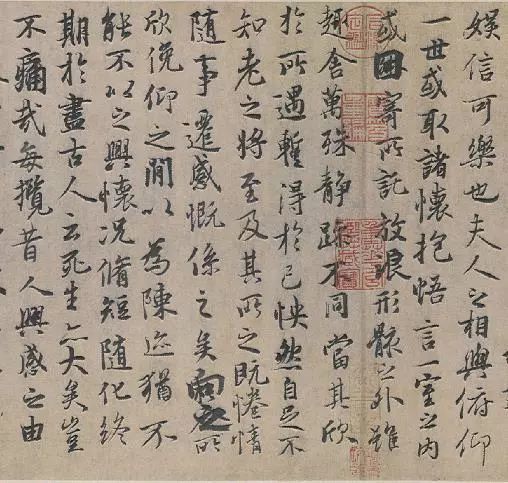 娱信可樂也夫人之相與俯仰
一世或取諸懷抱悟言一室之内
或因寄所託放浪形骸之外雖
趣舍萬殊静躁不同當其欣
於所遇蹔得於己怏然自足不
知老之將至及其所之既惓情
随事遷感慨係之矣向之所
欣俛仰之閒以為陳迹猶不
能不以之興懷況脩短随化終
期於盡古人云死生亦大矣豈
不痛哉每攬昔人興感之由